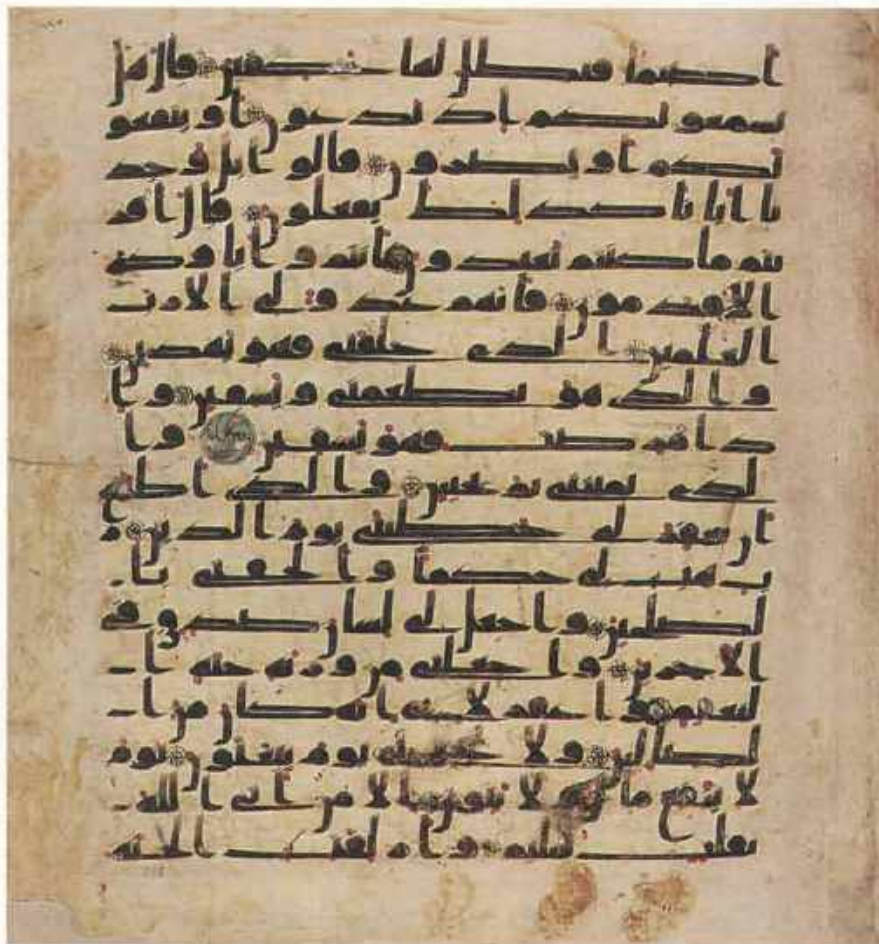 اصنما فنظل لها عكفين قال هل
يسمعونكم اذ تدعون او ينفعو
نكم او يضرون قالوا بل وجد
نا ابانا كذلك يفعلون قال افر
يتم ما كنتم تعبدون انتم واباوكم
الاقدمون فانهم عدو لي الا رب
العلمين الذي خلقني فهو يهدين
والذي هو يطعمني ويسقين وا
ذا مرضت فهو يشفين وا
لذي يميتني ثم يحيين والذي اطمع
ان يغفر لي خطيتي يوم الدين ر
ب هب لي حكما والحقني با
لصلحين واجعل لي لسان صدق في
الاخرين واجعلني من ورثة جنة ا
لنعيم واغفر لابي انه كان من ا
لضالين ولا تخزني يوم يبعثون يوم
لا ينفع مال ولا بنون الا من اتى الله
بقلب سليم وازلفت الجنة